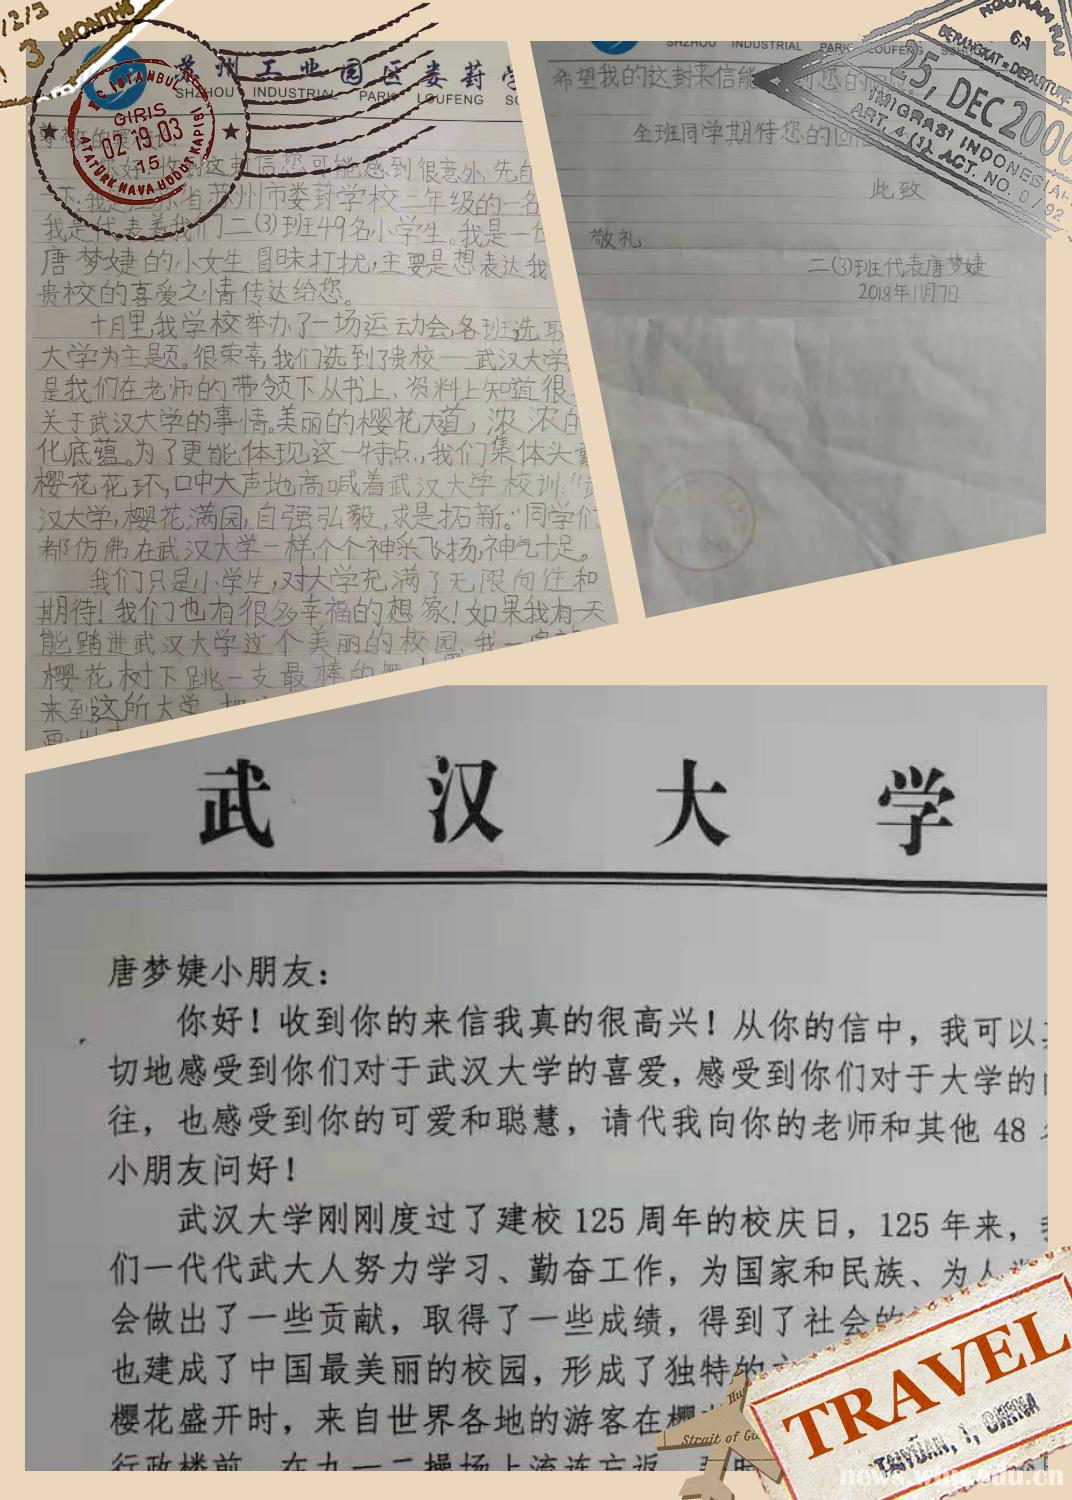 3 MONTHS
ISTANBUL
GIRIS
02·19·03
15
ATATÜRK HAVA HUDUT KAPISI
苏州工业园区娄葑学
SHZHOU INDUSTRIAL PARK LOUFENG
尊敬的
你好!收到这封信您可能感到很意外,先自
下:我是江苏省苏州市娄葑学校二年级的一名
我是代表着我们二(3)班49名小学生。我是一位
唐梦婕的小女生,冒昧打扰,主要是想表达我
贵校的喜爱之情传达给您。
十月里,我学校举办了一场运动会,各班选取
大学为主题。很荣幸,我们选到了贵校——武汉大学
是我们在老师的带领下从书上、资料上知道很
关于武汉大学的事情。美丽的樱花大道,浓浓的
化底蕴。为了更能体现这一特点,我们集体头戴
樱花花环,口中大声地高喊着武汉大学校训:“武
汉大学,樱花满园,自强弘毅,求是拓新。”同学们
都仿佛在武汉大学一样,个个神采飞扬,神气十足。
我们只是小学生,对大学充满了无限向往和
期待!我们也有很多幸福的想象!如果我有一天
能踏进武汉大学这个美丽的校园,我一定
樱花树下跳一支最棒的舞
来到这所大学
SHZHOU INDUSTRIAL PARK LOUFENG
希望我的这封来信能 到您的回
全班同学期待您的回
此致
敬礼
二(3)班代表唐梦婕
2018年11月7日
NGURAH RAI
6A
BERANGKAT=DEPARTURE
25, DEC 2000
IMIGRASI INDONESIA
ART. 4.(1). ACT. NO. 9/92
武汉大学
唐梦婕小朋友:
你好!收到你的来信我真的很高兴!从你的信中,我可以真
切地感受到你们对于武汉大学的喜爱,感受到你们对于大学的向
往,也感受到你的可爱和聪慧,请代我向你的老师和其他 48 名
小朋友问好!
武汉大学刚刚度过了建校 125 周年的校庆日,125 年来,我
们一代代武大人努力学习、勤奋工作,为国家和民族、为人类
会做出了一些贡献,取得了一些成绩,得到了社会的
也建成了中国最美丽的校园,形成了独特的
樱花盛开时,来自世界各地的游客在樱
行政楼前、在九一二操场上流连忘返
Strait of
TRAVEL
TAIYUAN, 1, CHINA
news.whu.edu.cn